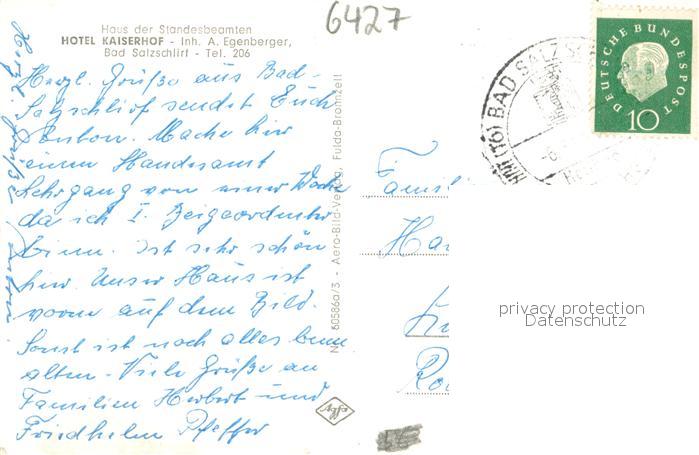 6427
Haus der Standesbeamten
HOTEL KAISERHOF - Inh. A. Egenberger,
Bad Salzschlirf - Tel. 206
Herzl. Grüße aus Bad-
Salzschlirf sendet Euch
Anton. Mache hier
einen Standesamt
Lehrgang von einer Woche
da ich I. Beigeordneter
binn. Ist sehr schön
hier. Unser Haus ist
vorne auf dem Bild.
Sonst ist noch alles beim
alten. Viele Grüße an
Familien Herbert und
Friedhelm Pfeffer
Herzl. Grüße
Aero-Bild-Verlag, Fulda-Bronnzell
Agfa
Famil
Ha
DEUTSCHE BUNDESPOST
10
(16) BAD SALZSCH
privacy protection
Datenschutz